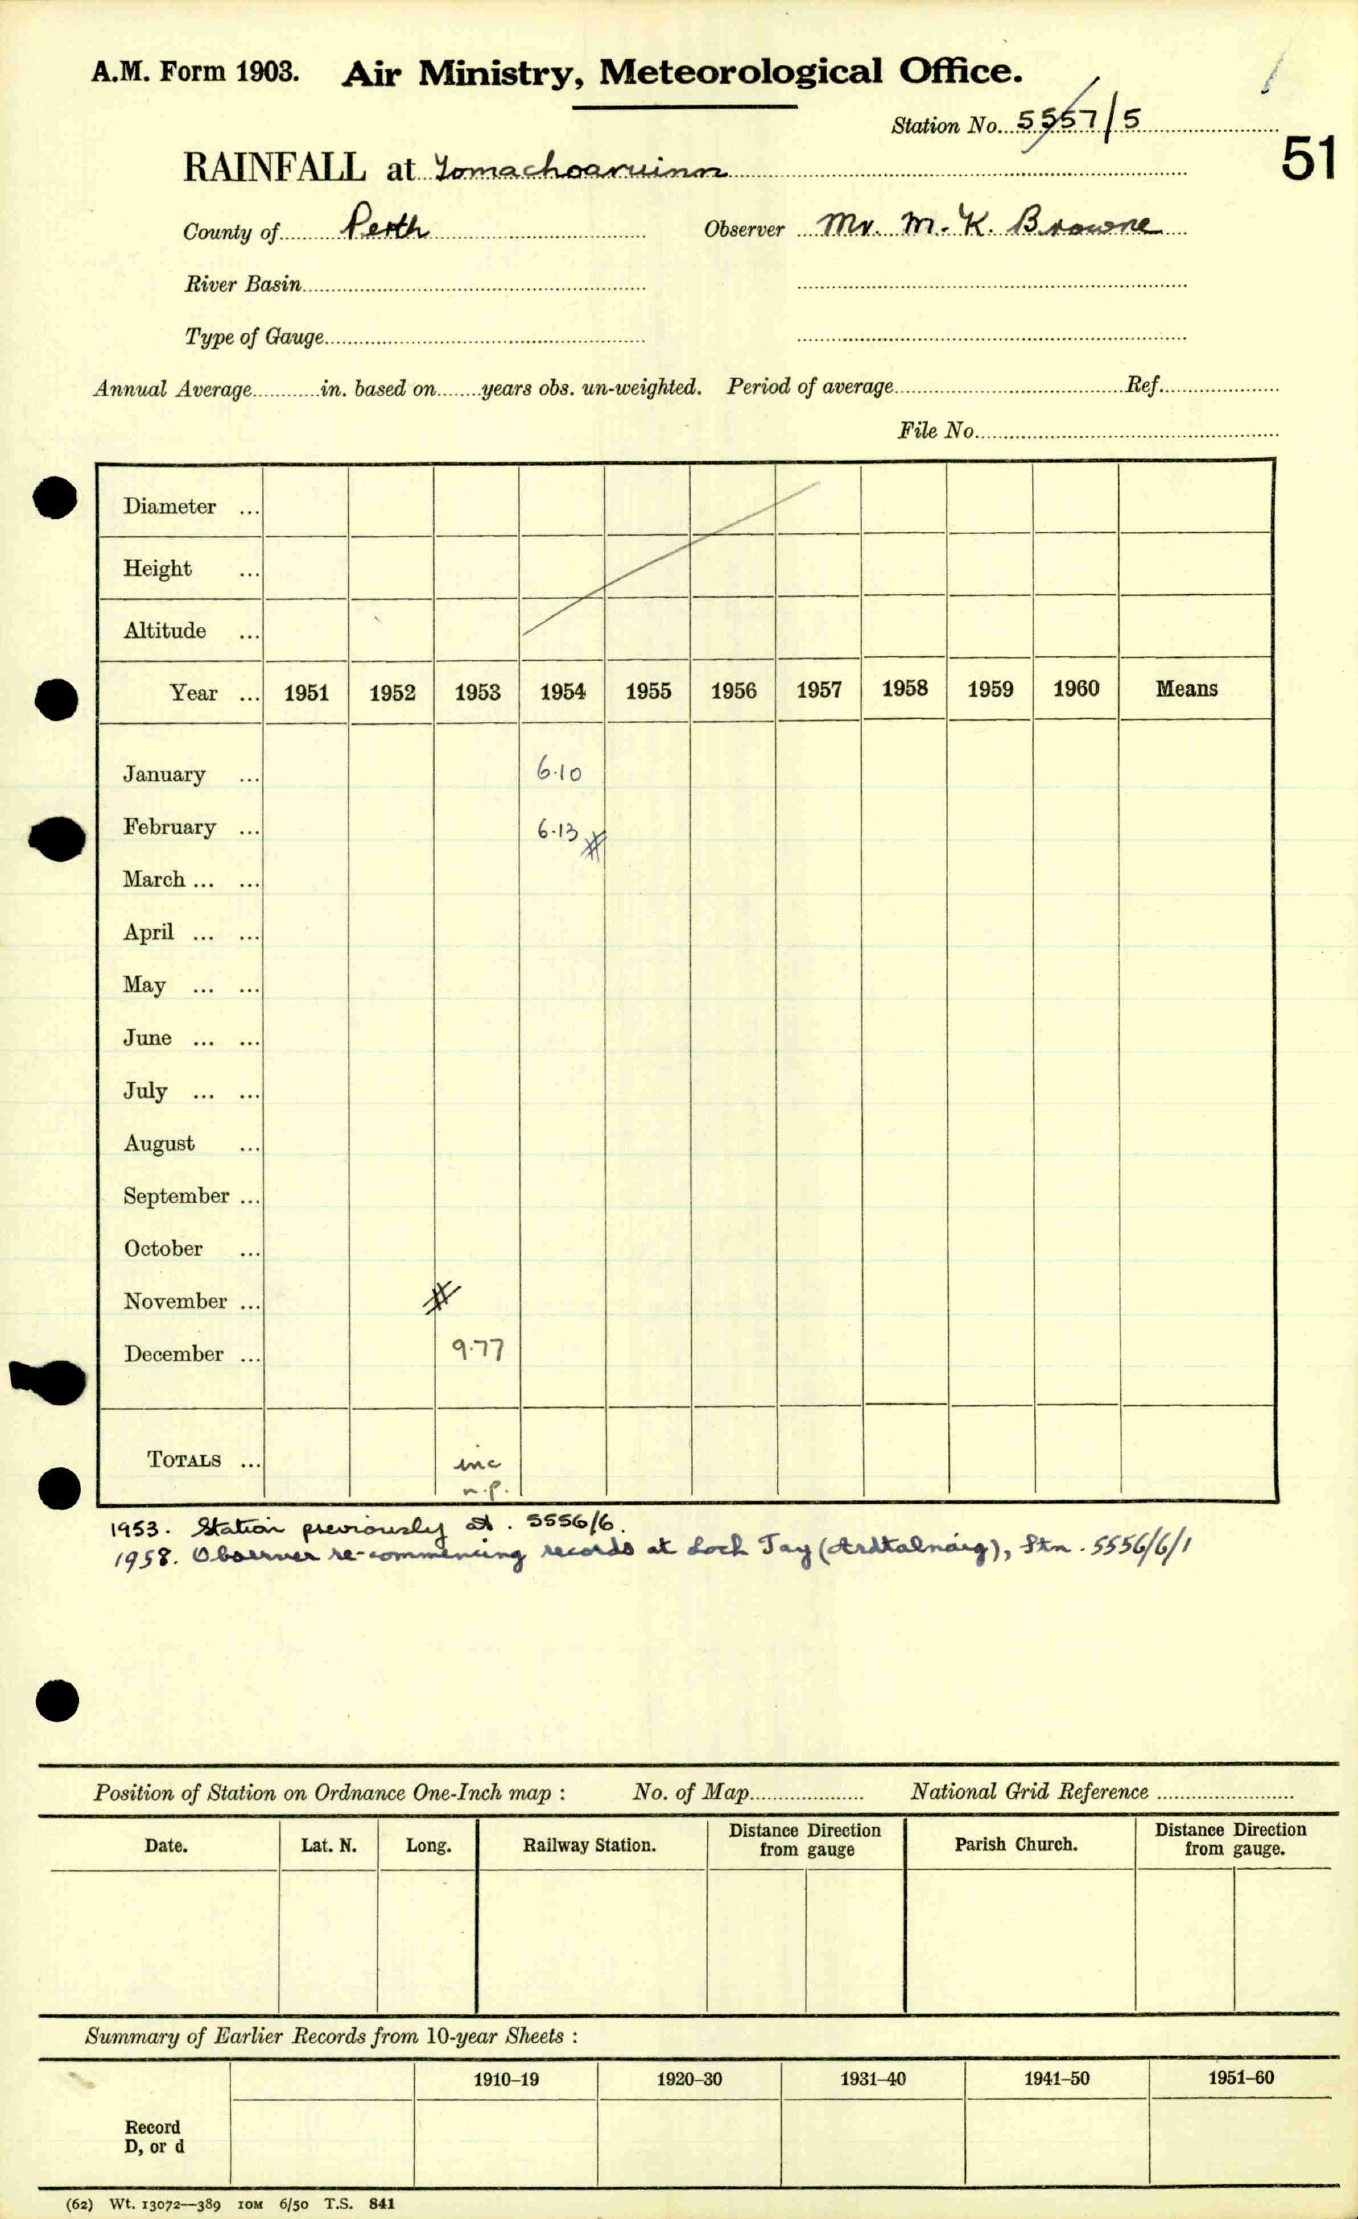 A.M. Form 1903. Air Ministry, Meteorological Office.
Station No. 5557/5
51
RAINFALL at Tomachoaruinn
County of Perth Observer Mr. M. K. Browne
River Basin
Type of Gauge
Annual Average in. based on years obs. un-weighted. Period of average Ref.
File No.
Diameter ...
Height ...
Altitude ...
Year ... 1951 1952 1953 1954 1955 1956 1957 1958 1959 1960 Means
January ... 6.10
February ... 6.13 #
March ... ...
April ... ...
May ... ...
June ... ...
July ... ...
August ...
September ...
October ...
November ... #
December ... 9.77
TOTALS ... inc
n.p.
1953. Station previously at. 5556/6.
1958. Observer re-commencing records at Loch Tay (Ardtalnaig), Stn. 5556/6/1
Position of Station on Ordnance One-Inch map : No. of Map National Grid Reference
Date. Lat. N. Long. Railway Station. Distance from Direction gauge Parish Church. Distance from Direction gauge.
Summary of Earlier Records from 10-year Sheets :
1910–19 1920–30 1931–40 1941–50 1951–60
Record
D, or d
(62) Wt. 13072—389 10M 6/50 T.S. 841